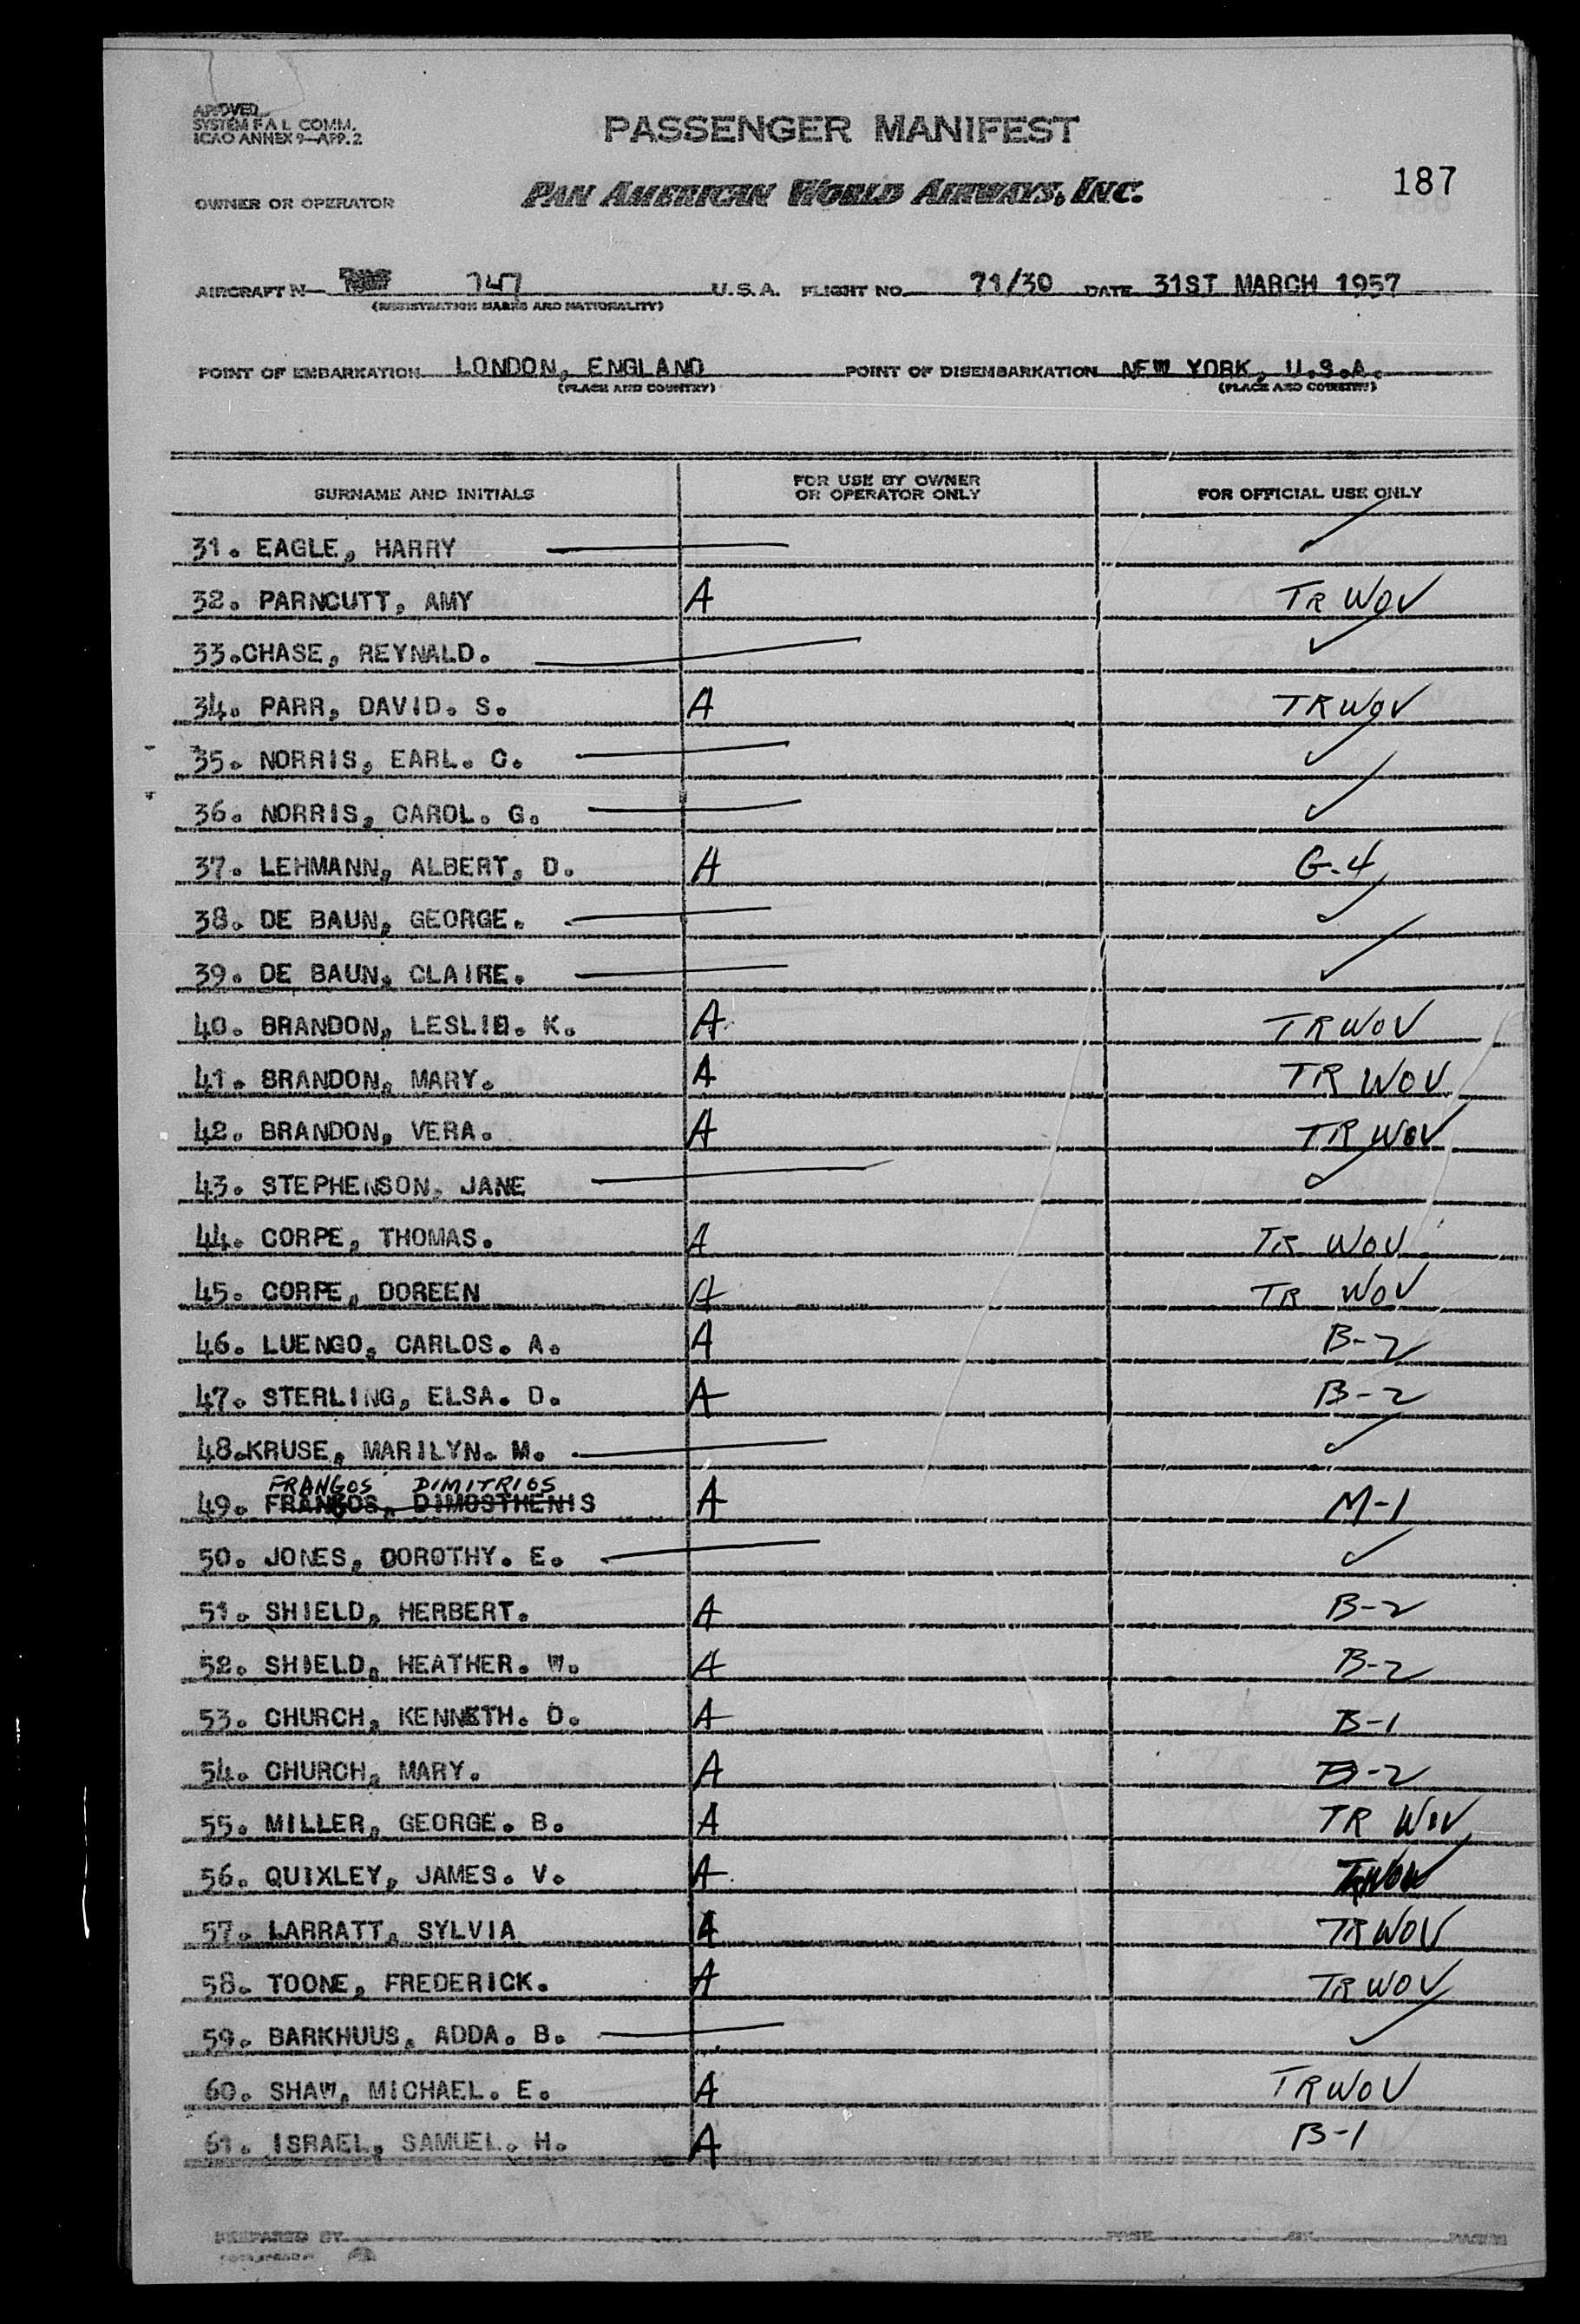 APPROVED
SYSTEM F A L COMM.
ICAO ANNEX 9—APP. 2
PASSENGER MANIFEST
187
OWNER OR OPERATOR PAN AMERICAN WORLD AIRWAYS, INC.
AIRCRAFT N— 747 U.S.A. FLIGHT NO. 71/30 DATE 31ST MARCH 1957
(REGISTRATION MARKS AND NATIONALITY)
POINT OF EMBARKATION LONDON, ENGLAND POINT OF DISEMBARKATION NEW YORK, U.S.A.
(PLACE AND COUNTRY) (PLACE AND COUNTRY)
SURNAME AND INITIALS FOR USE BY OWNER OR OPERATOR ONLY FOR OFFICIAL USE ONLY
31. EAGLE, HARRY ✓
32. PARNCUTT, AMY A TR WOV
33.CHASE, REYNALD. ✓
34. PARR, DAVID. S. A TR WOV
35. NORRIS, EARL. C. ✓
36. NORRIS, CAROL. G. ✓
37. LEHMANN, ALBERT, D. A G-4
38. DE BAUN, GEORGE. ✓
39. DE BAUN, CLAIRE. ✓
40. BRANDON, LESLIE. K. A TR WOV
41. BRANDON, MARY. A TR WOV
42. BRANDON, VERA. A TR WOV
43. STEPHENSON, JANE ✓
44. CORPE, THOMAS. A TR WOV
45. CORPE, DOREEN A TR WOV
46. LUENGO, CARLOS. A. A B-2
47. STERLING, ELSA. D. A B-2
48.KRUSE, MARILYN. M. ✓
FRANGOS DIMITRIOS
49. FRANGOS, DIMOSTHENIS A M-1
50. JONES, DOROTHY. E. ✓
51. SHIELD, HERBERT. A B-2
52. SHIELD, HEATHER. W. A B-2
53. CHURCH, KENNETH. D. A B-1
54. CHURCH, MARY. A B-2
55. MILLER, GEORGE. B. A TR WOV
56. QUIXLEY, JAMES. V. A TRWOV
57. LARRATT, SYLVIA A TR WOV
58. TOONE, FREDERICK. A TR WOV
59. BARKHUUS, ADDA. B. ✓
60. SHAW, MICHAEL. E. A TR WOV
61. ISRAEL, SAMUEL. H. A B-1
PREPARED BY PAGE OF PAGES